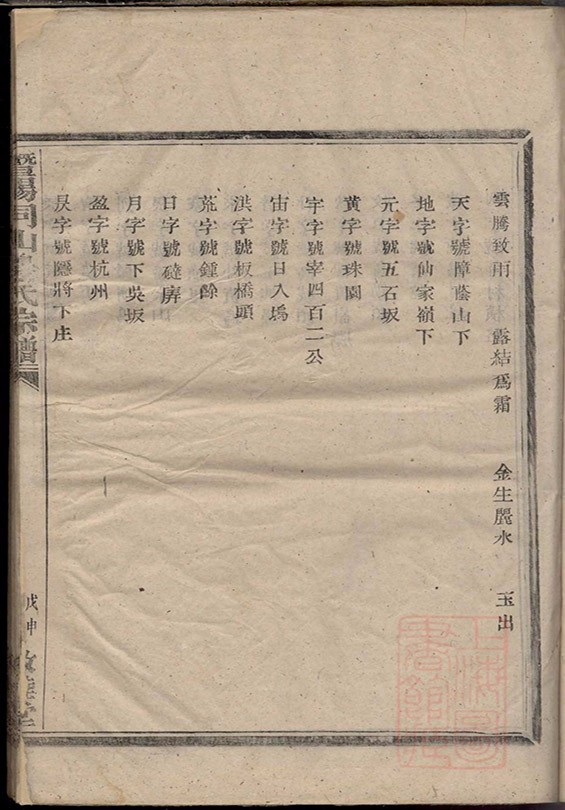 雲騰致雨 露結為霜 金生麗水 玉出
天字號障蔭山下
地字號仙家嶺下
元字號五石坂
黄字號珠園
宇字號宰四百二公
宙字號日入塢
洪字號板橋頭
荒字號鍾餘
日字號
月字號下吳坂
盈字號杭州
昃字號隱將下庄
暨陽同山 氏宗譜
戊申
上海圖書館藏